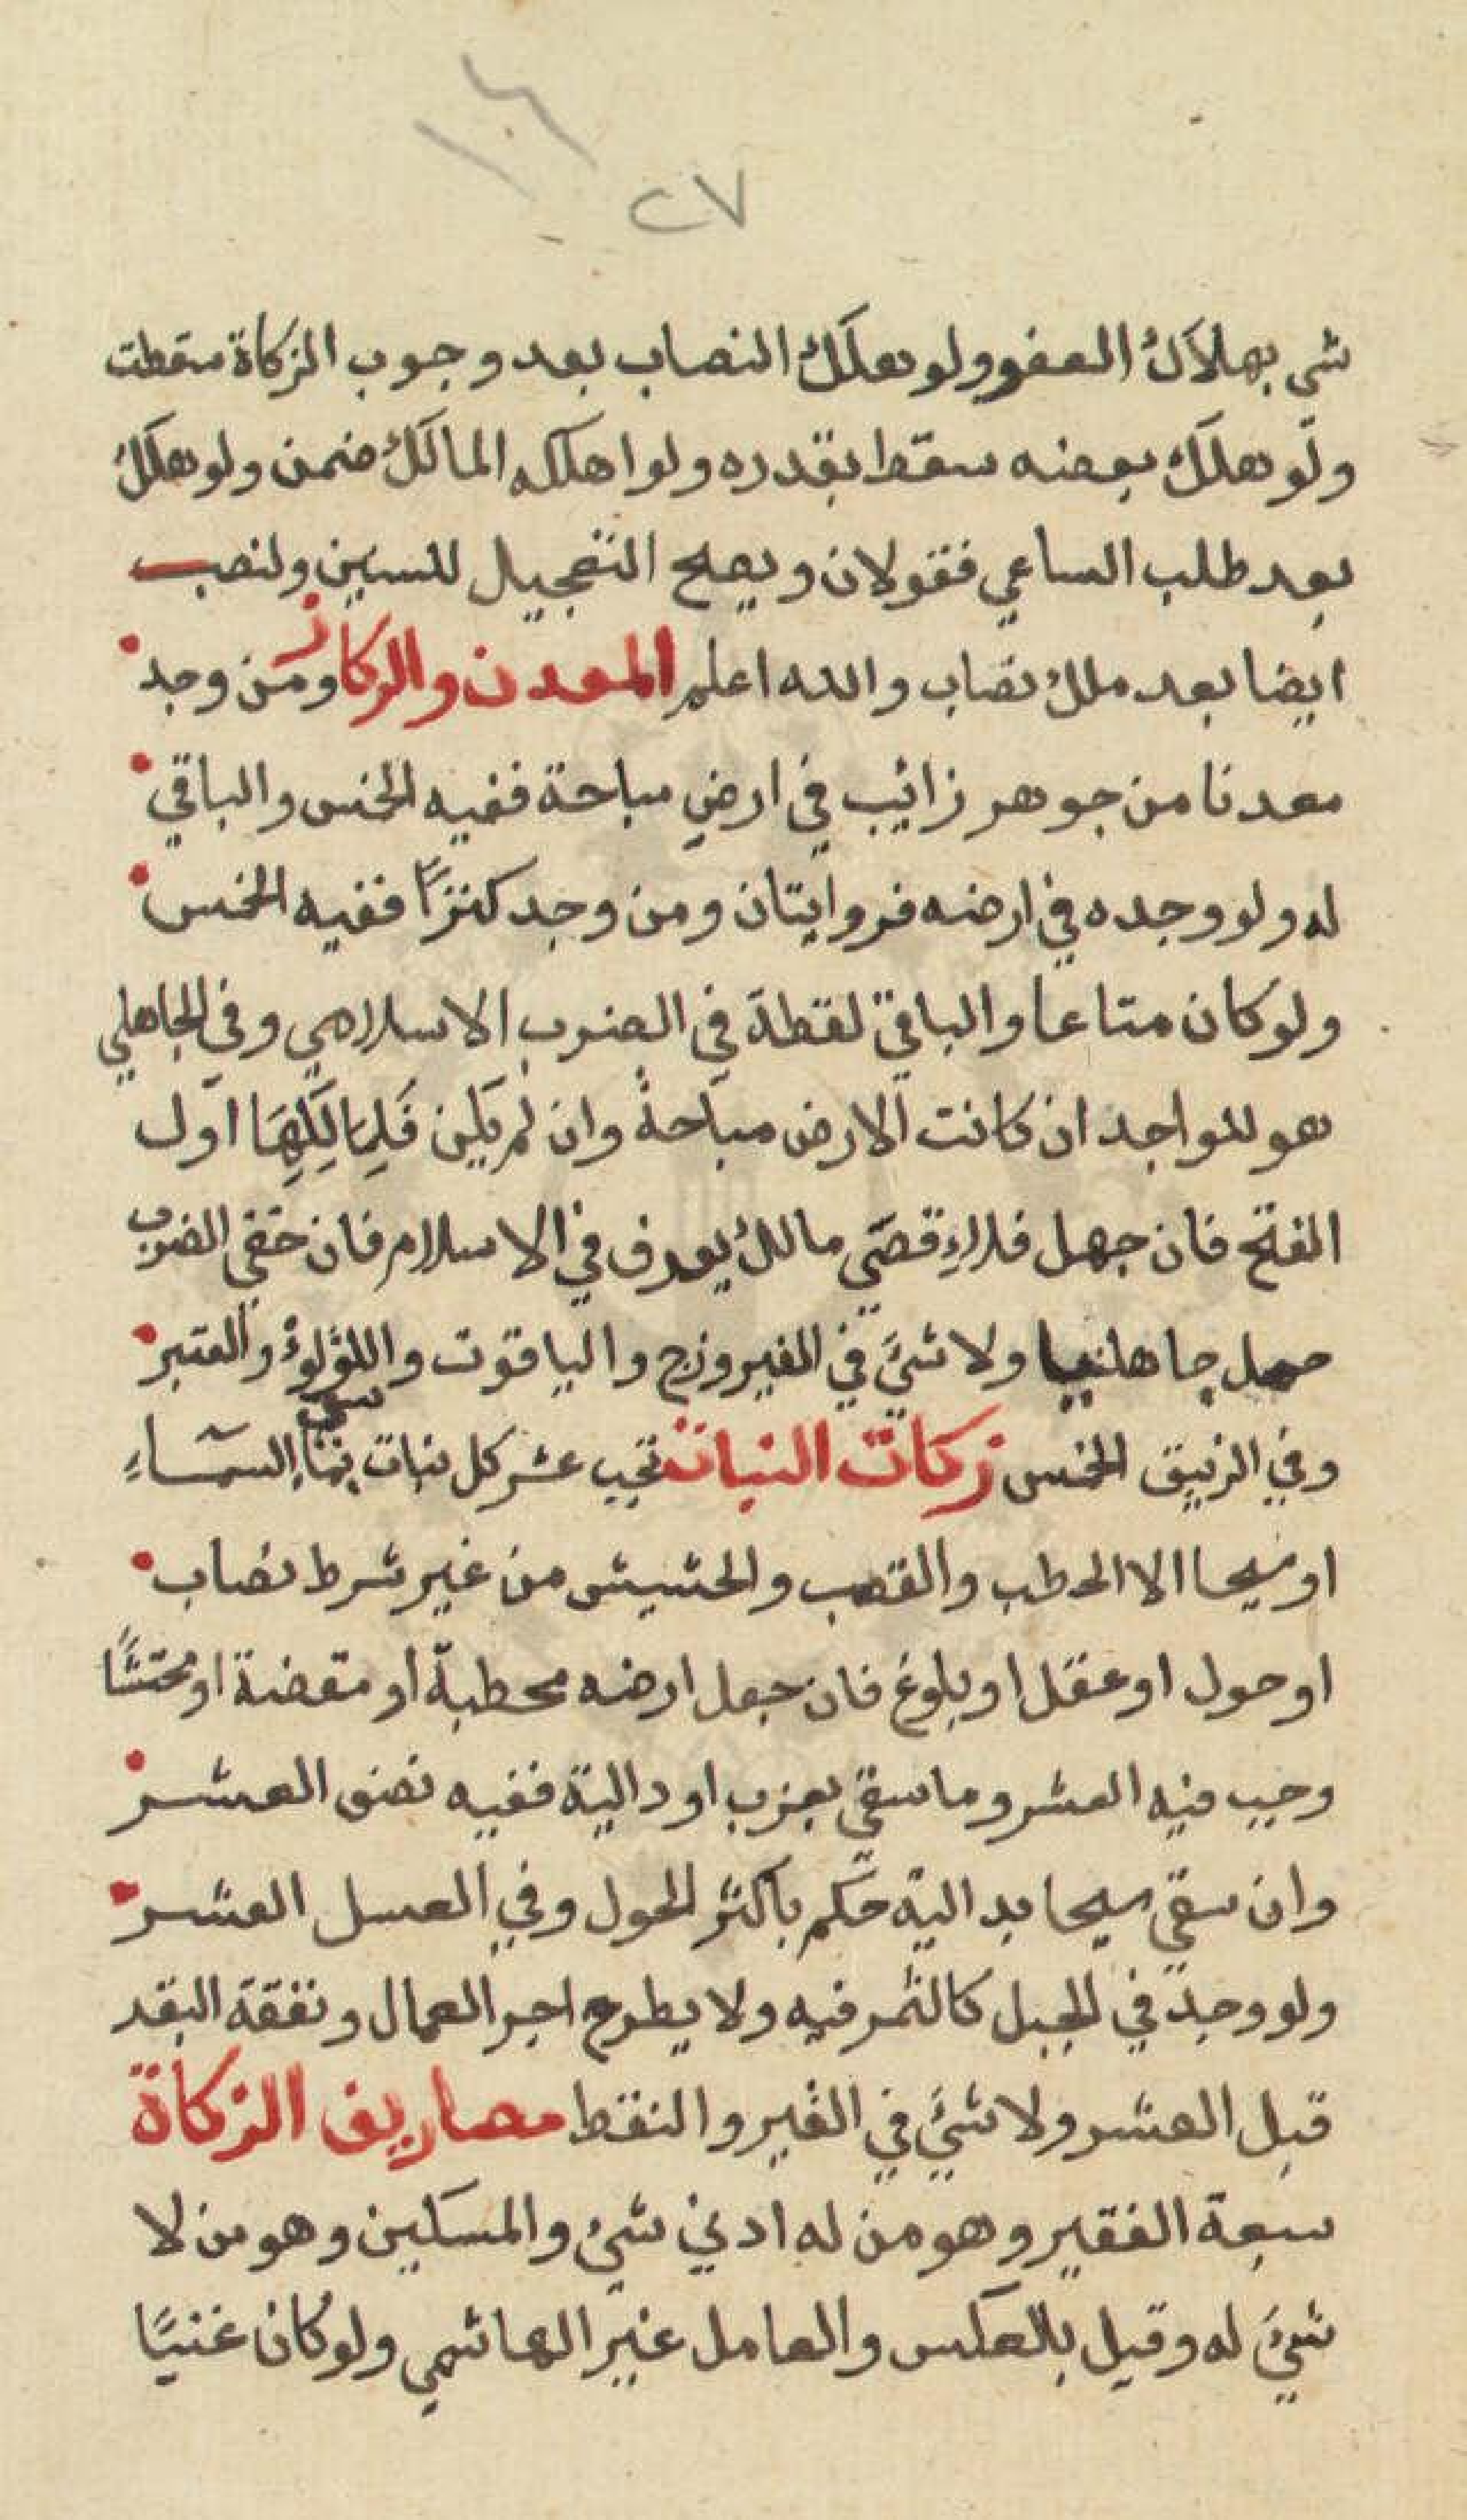 ٢٧
شي بهلاك العفو ولو هلك النصاب بعد وجوب الزكاة سقطت
ولو هلك بعضه سقط بقدره ولو اهلكه المالك ضمن ولو هلك
بعد طلب الساعي فقولان ويصح التعجيل للسنين ولنصب
ايضا بعد ملك نصاب والله اعلم المعدن والركاز ومن وجد
معدنا من جوهر زائب في ارض مباحة ففيه الخمس والباقي
له ولو وجده في ارضه فروايتان ومن وجد كنزًا ففيه الخمس
ولو كان متاعا والباقي لقطة في الضرب الاسلامي وفي الجاهلي
هو للواجد ان كانت الارض مباحة وان لم يكن فَلِمالِكِهَا اول
الفتح فان جهل فلاءِقصَي مالك يعرف في الاسلام فان خفي الضرب
جعل جاهليا ولا شئ في الفيروزج والياقوت واللؤلوْ والعنبر
وفي الزيبق الخمس زكات النبات تجب عشر كل نبات سقي بماء السمَاءِ
او سيحا الا الحطب والقصب والحشيش من غير شرط نصاب
او حول او عقل او بلوغ فان جعل ارضه محطبة او مقصبة او محتشًا
وجب فيه العشر وما سقي بغرب او دالية ففيه نصف العشر
وان سقي سيحا بدالية حكم باكثر الحول وفي العسل العشر
ولو وجد في الجبل كالثمر فيه ولا يطرح اجر العمال ونفقة البقر
قبل العشر ولا شئَ في القير والنفط مصاريف الزكاة
سبعة الفقير وهو من له ادني شئ والمسكين وهو من لا
شئَ له وقيل بالعكس والعامل غير الهاشمي ولو كان غنيًا